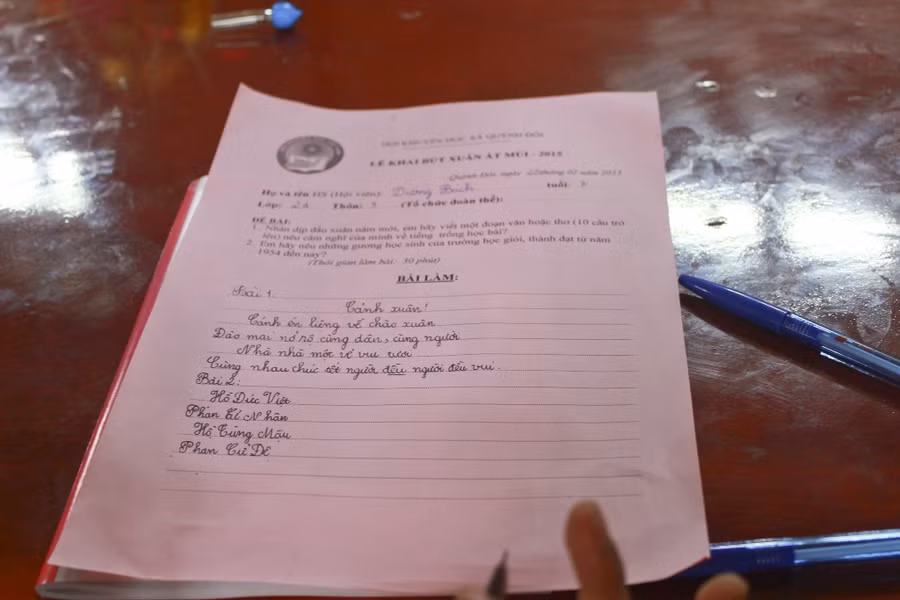 HỘI KHUYẾN HỌC XÃ QUỲNH ĐÔI
LỄ KHAI BÚT XUÂN ẤT MÙI - 2015
Quỳnh Đôi, ngày 22 tháng 02 năm 2015
Họ và tên HS (Hội viên): Dương Bách tuổi:
Lớp: 2A Thôn: 3 (Tổ chức đoàn thể):
ĐỀ BÀI:
1. Nhân dịp đầu xuân năm mới, em hãy viết một đoạn văn hoặc thơ (10 câu trở
lên) nêu cảm nghĩ của mình về tiếng trống học bài?
2. Em hãy nêu những gương học sinh của trường học giỏi, thành đạt từ năm
1954 đến nay?
(Thời gian làm bài: 30 phút)
BÀI LÀM:
Bài 1:
Cánh xuân!
Cánh én liệng về chào xuân
Đào mai nở rộ cùng dân, cùng người
Nhà nhà một vẻ vui tươi
Cùng nhau chúc tết người đều người đều vui.
Bài 2:
Hồ Đức Việt
Phan Nhân
Hồ Tùng Mậu
Phan Cự Đệ